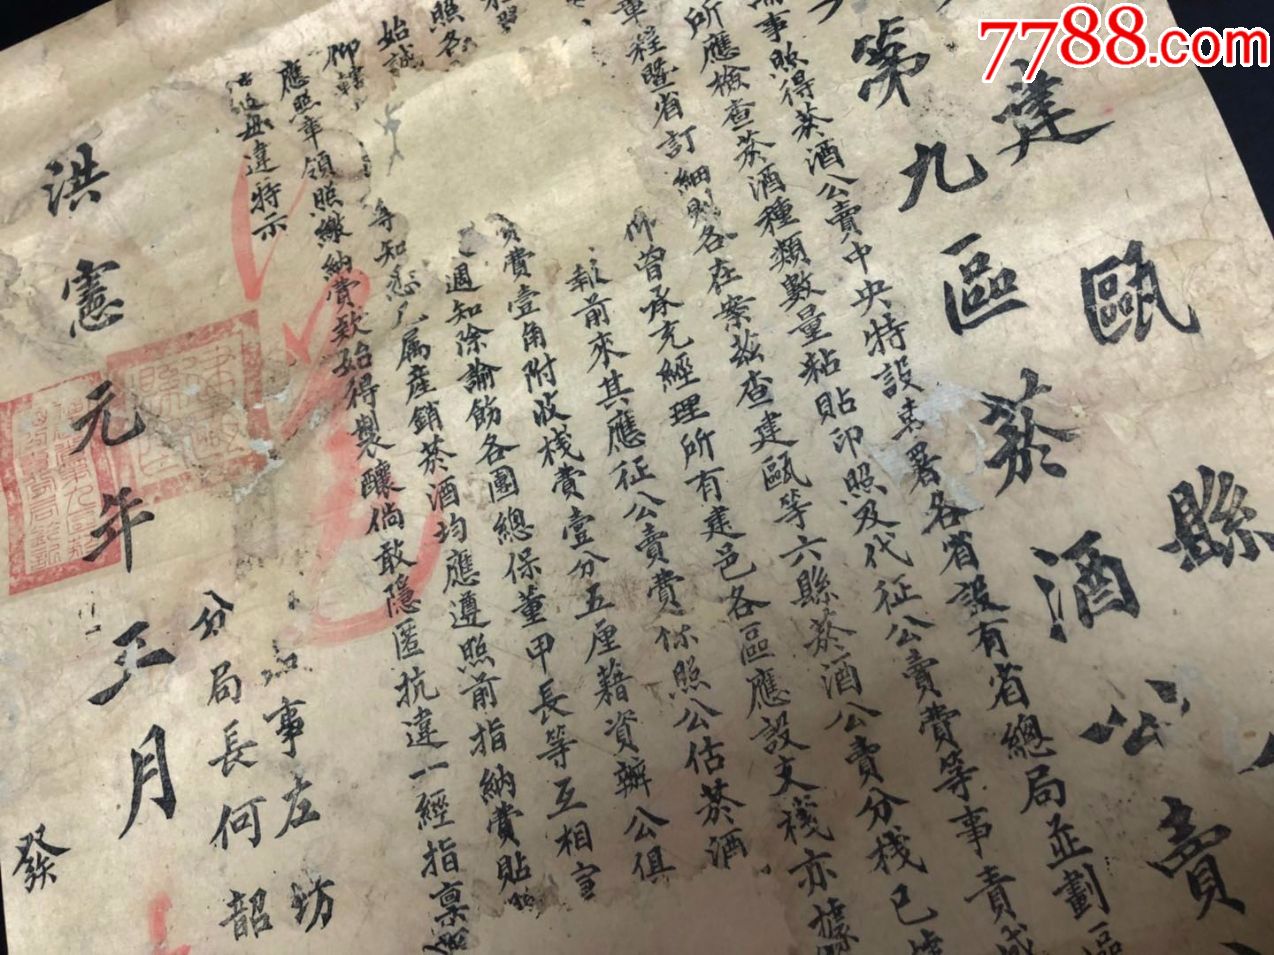 7788.com
建甌縣
第九區菸酒公賣
事照得菸酒公賣中央特設專署各省設有省總局並劃區
所應檢查菸酒種類數量粘貼印照及代征公賣費等事責成
章程暨省訂細則各在案茲查建甌等六縣菸酒公賣分棧已
仰曾承充經理所有建邑各區應設支棧亦據
報前來其應征公賣費依照公估菸酒
費壹角附收棧費壹分五厘藉資辦公俱
週知除諭飭各團總保董甲長等互相
照各
等知悉凡属産銷菸酒均應遵照前指納費貼
始
仰
應照章領照繳納費款始得製釀倘敢隱匿抗違一經指禀
毋違特示
事左坊
分局長何韶
洪憲元年三月
發